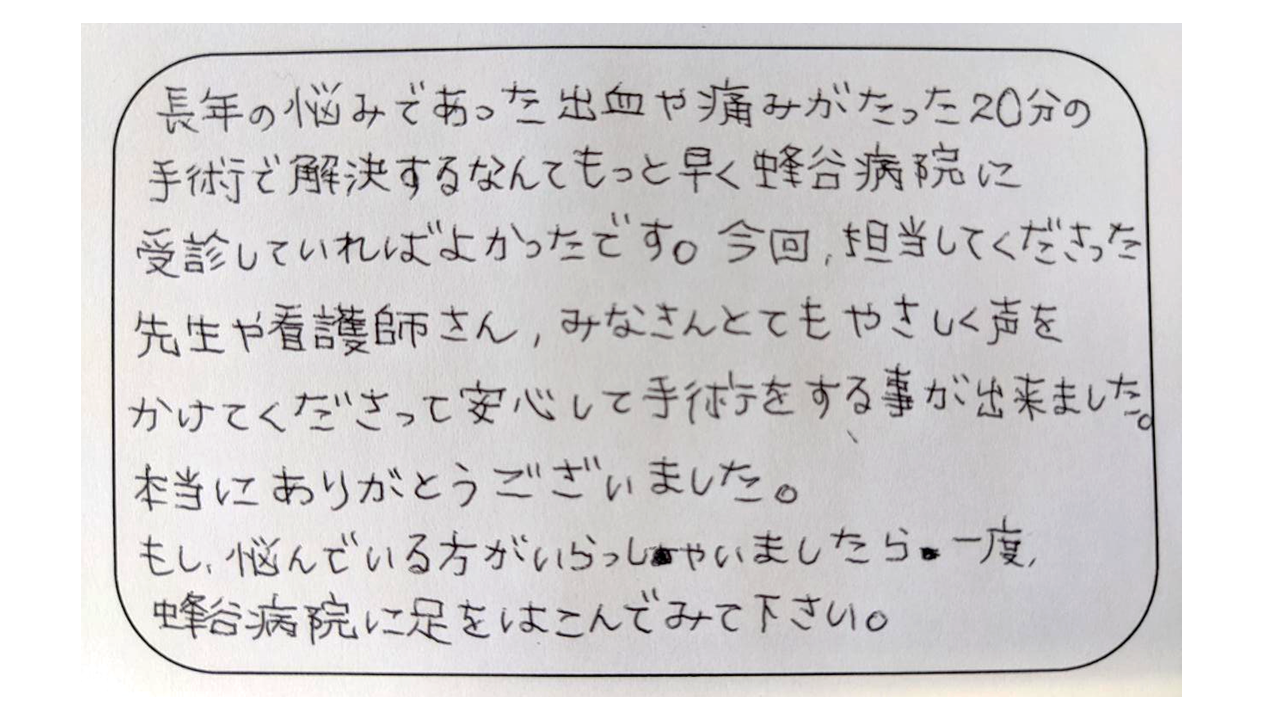 長年の悩みであった出血や痛みがたった20分の
手術で解決するなんてもっと早く蜂谷病院に
受診していればよかったです。今回,担当してくださった
先生や看護師さん,みなさんとてもやさしく声を
かけてくださって安心して手術をする事が出来ました。
本当にありがとうございました。
もし,悩んでいる方がいらっしゃいましたら一度,
蜂谷病院に足をはこんでみて下さい。